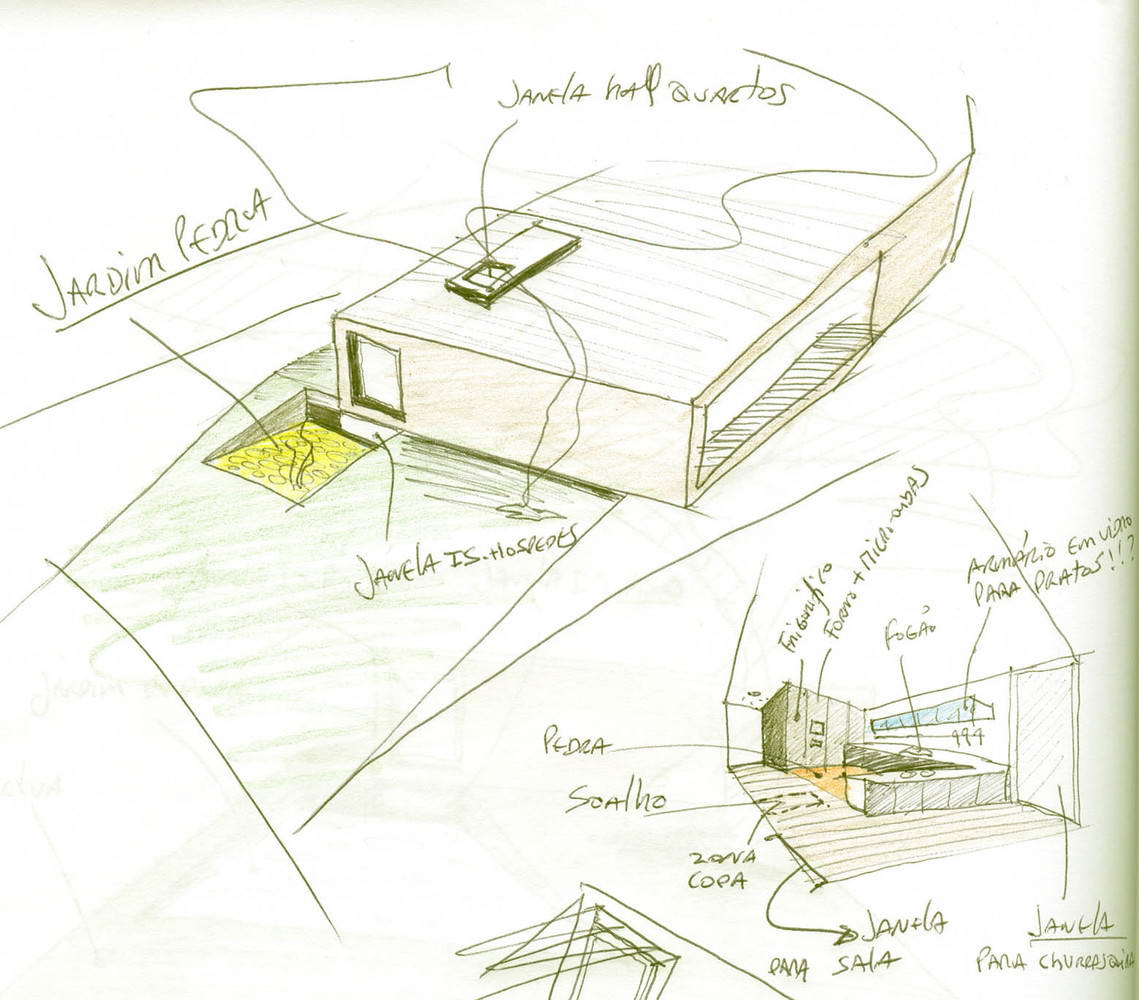 JANELA hall QUARTOS
JARDIM PEDRA
JANELA IS. HOSPEDES
FRIGORIFICO
FORNO + MICRO-ONDAS
FOGÃO
ARMÁRIO EM VIDRO
PARA PRATOS!!?
PEDRA
SOALHO
ZONA
COPA
JANELA
PARA SALA
JANELA
PARA CHURRASQUEIRA